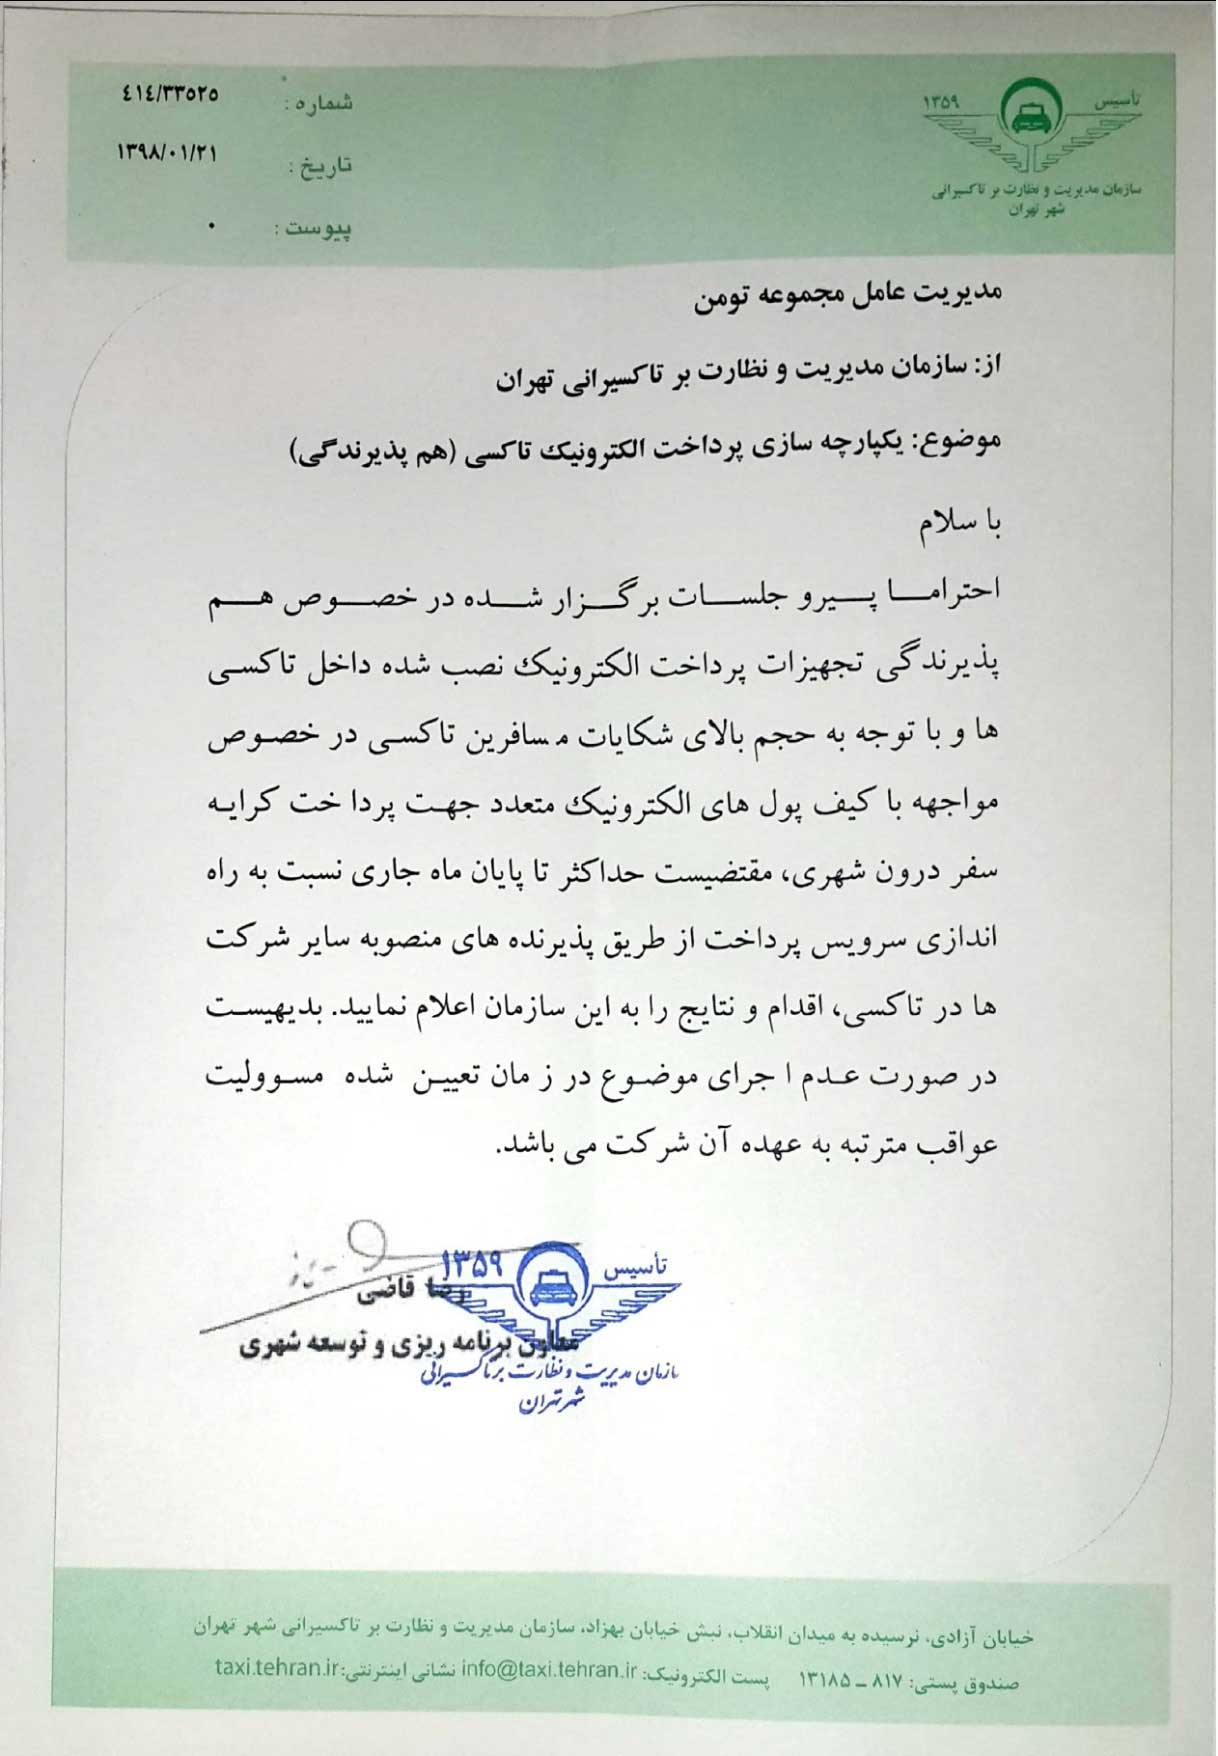 تأسیس ۱۳۵۹
سازمان مدیریت و نظارت بر تاکسیرانی
شهر تهران
شماره : ٤١٤/٣٣٥٢٥
تاریخ : ۱۳۹۸/۰۱/۲۱
پیوست : ۰
مدیریت عامل مجموعه تومن
از: سازمان مدیریت و نظارت بر تاکسیرانی تهران
موضوع: یکپارچه سازی پرداخت الکترونیک تاکسی (هم پذیرندگی)
با سلام
احتراما پیرو جلسات برگزار شده در خصوص هم
پذیرندگی تجهیزات پرداخت الکترونیک نصب شده داخل تاکسی
ها و با توجه به حجم بالای شکایات مسافرین تاکسی در خصوص
مواجهه با کیف پول های الکترونیک متعدد جهت پرداخت کرایه
سفر درون شهری، مقتضیست حداکثر تا پایان ماه جاری نسبت به راه
اندازی سرویس پرداخت از طریق پذیرنده های منصوبه سایر شرکت
ها در تاکسی، اقدام و نتایج را به این سازمان اعلام نمایید. بدیهیست
در صورت عدم اجرای موضوع در زمان تعیین شده مسوولیت
عواقب مترتبه به عهده آن شرکت می باشد.
تأسیس ۱۳۵۹
رضا قاضی
معاون برنامه ریزی و توسعه شهری
سازمان مدیریت و نظارت بر تاکسیرانی
شهر تهران
خیابان آزادی، نرسیده به میدان انقلاب، نبش خیابان بهزاد، سازمان مدیریت و نظارت بر تاکسیرانی شهر تهران
صندوق پستی: ۸۱۷ ـ ۱۳۱۸۵ پست الکترونیک: info@taxi.tehran.ir نشانی اینترنتی: taxi.tehran.ir